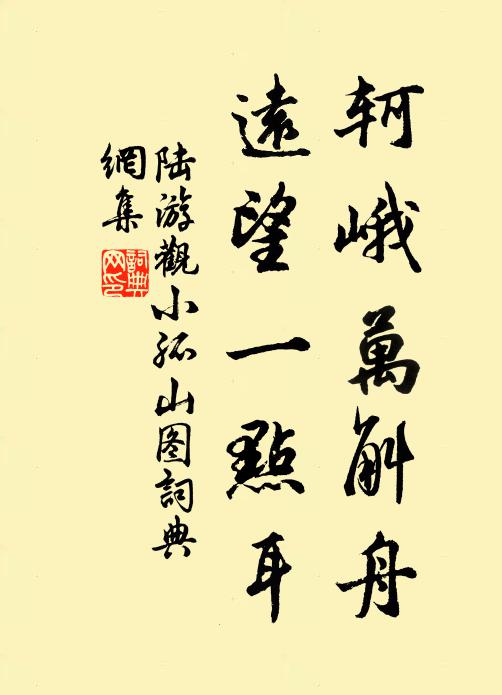 軻峨萬斛舟
遠望一點耳
陸游觀小孤山图詞典
網集
詞典
网印